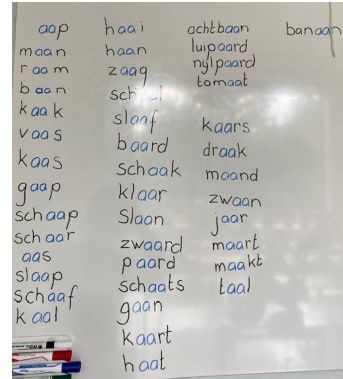 aap
maan
raam
baan
kaak
vaas
kaas
gaap
schaap
schaar
aas
slaap
schaaf
kaal
haai
haan
zaag
slaaf
baard
schaak
klaar
slaan
zwaard
paard
schaats
gaan
kaart
haat
achtbaan
luipaard
nylpaard
tomaat
kaars
draak
maand
zwaan
jaar
maart
maakt
taal
banaan